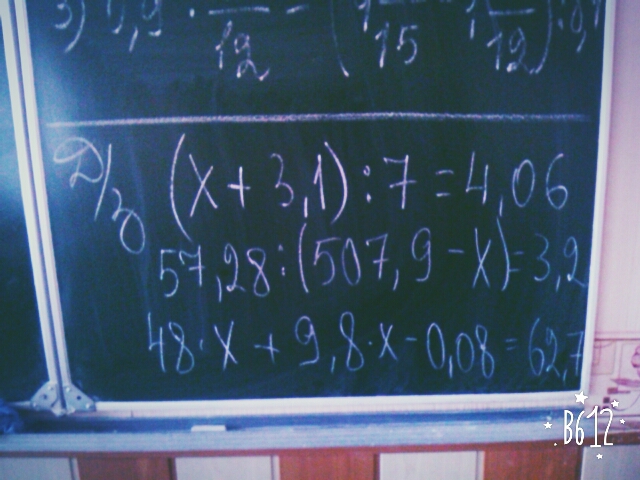 3) 0,9 · — 12 — ( 15 12 ) :
Д/з (x + 3,1) : 7 = 4,06
57,28 : (507,9 - x) = 3,2
48 · x + 9,8 · x - 0,08 = 62,7
B612